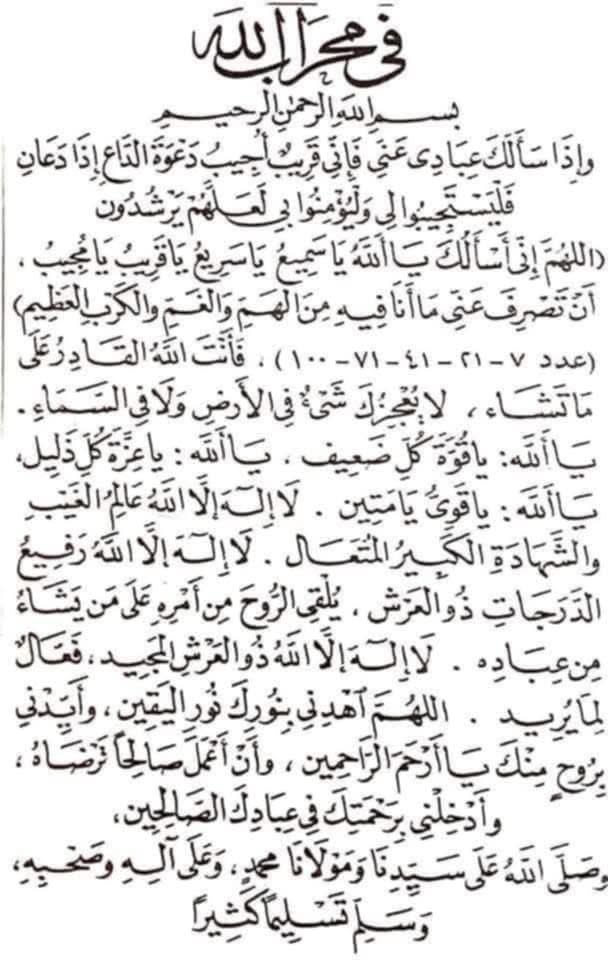 في محراب الله
بسم الله الرحمن الرحيم
وَإِذَا سَأَلَكَ عِبَادِى عَنِّى فَإِنِّى قَرِيبٌ أُجِيبُ دَعْوَةَ الدَّاعِ إِذَا دَعَانِ
فَلْيَسْتَجِيبُوا لِى وَلْيُؤْمِنُوا بِى لَعَلَّهُمْ يَرْشُدُون
(اللهُمَّ إِنِّى أَسْأَلُكَ يَا اَللَّهُ يَا سَمِيعُ يَا سَرِيعُ يَا قَرِيبُ يَا مُجِيبُ ،
أَنْ تَصْرِفَ عَنِّى مَا أَنَا فِيهِ مِنَ الْهَمِّ وَالْغَمِّ وَالْكَرْبِ الْعَظِيمِ)
(عدد ٧ - ٢١ - ٤١ - ٧١ - ١٠٠) ، فَأَنْتَ اللَّهُ الْقَادِرُ عَلَى
مَا تَشَاء ، لَا يُعْجِزُكَ شَىْءٌ فِى الْأَرْضِ وَلَا فِى السَّمَاءِ .
يَا اَللَّه : يا قُوَّةَ كُلِّ ضَعِيف ، يَا اَللَّه : يا عِزَّةَ كُلِّ ذَلِيل ،
يَا اَللَّه : يا قَوِىُّ يَا مَتِين . لَا إِلَهَ إِلَّا اللَّهُ عَالِمُ الْغَيْبِ
وَالشَّهَادَةِ الْكَبِيرُ الْمُتَعَال . لَا إِلَهَ إِلَّا اللَّهُ رَفِيعُ
الدَّرَجَاتِ ذُو الْعَرْش ، يُلْقِى الرُّوحَ مِنْ أَمْرِهِ عَلَى مَن يَشَاءُ
مِن عِبَادِه . لَا إِلَهَ إِلَّا اللَّهُ ذُو الْعَرْشِ الْمَجِيد ، فَعَّالٌ
لِمَا يُرِيد . اللهُمَّ اهْدِنِى بِنُورِكَ نُورِ الْيَقِين ، وَأَيِّدْنِى
بِرُوحٍ مِنْكَ يَا أَرْحَمَ الرَّاحِمِين ، وَأَنْ أَعْمَلَ صَالِحًا تَرْضَاهُ ،
وَأَدْخِلْنِى بِرَحْمَتِكَ فِى عِبَادِكَ الصَّالِحِين ،
وَصَلَّى اللَّهُ عَلَى سَيِّدِنَا وَمَوْلَانَا مُحَمَّدٍ ، وَعَلَى آلِهِ وَصَحْبِهِ ،
وَسَلِّم تَسْلِيمًا كَثِيرًا